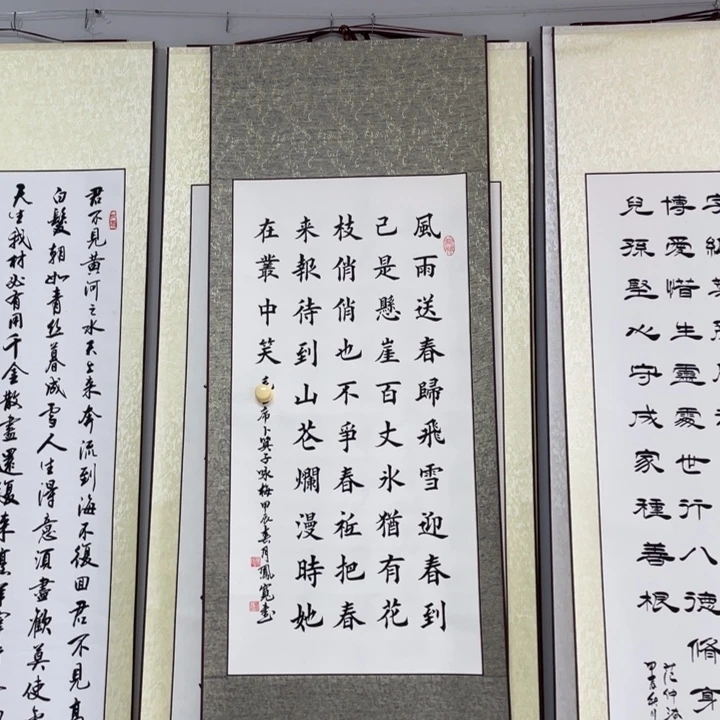 君不見黃河之水天上来奔流到海不復回君不見高
白髮朝如青丝暮成雪人生得意須盡歡莫使
天生我材必有用千金散盡還復来
風雨送春歸飛雪迎春到
已是懸崖百丈冰猶有花
枝俏俏也不爭春衹把春
来報待到山花爛漫時她
在叢中笑
毛席卜算子咏梅甲辰春月鳳寬書
博愛惜生靈處世行八德脩身
兒孫堅心守成家種善根
范仲淹